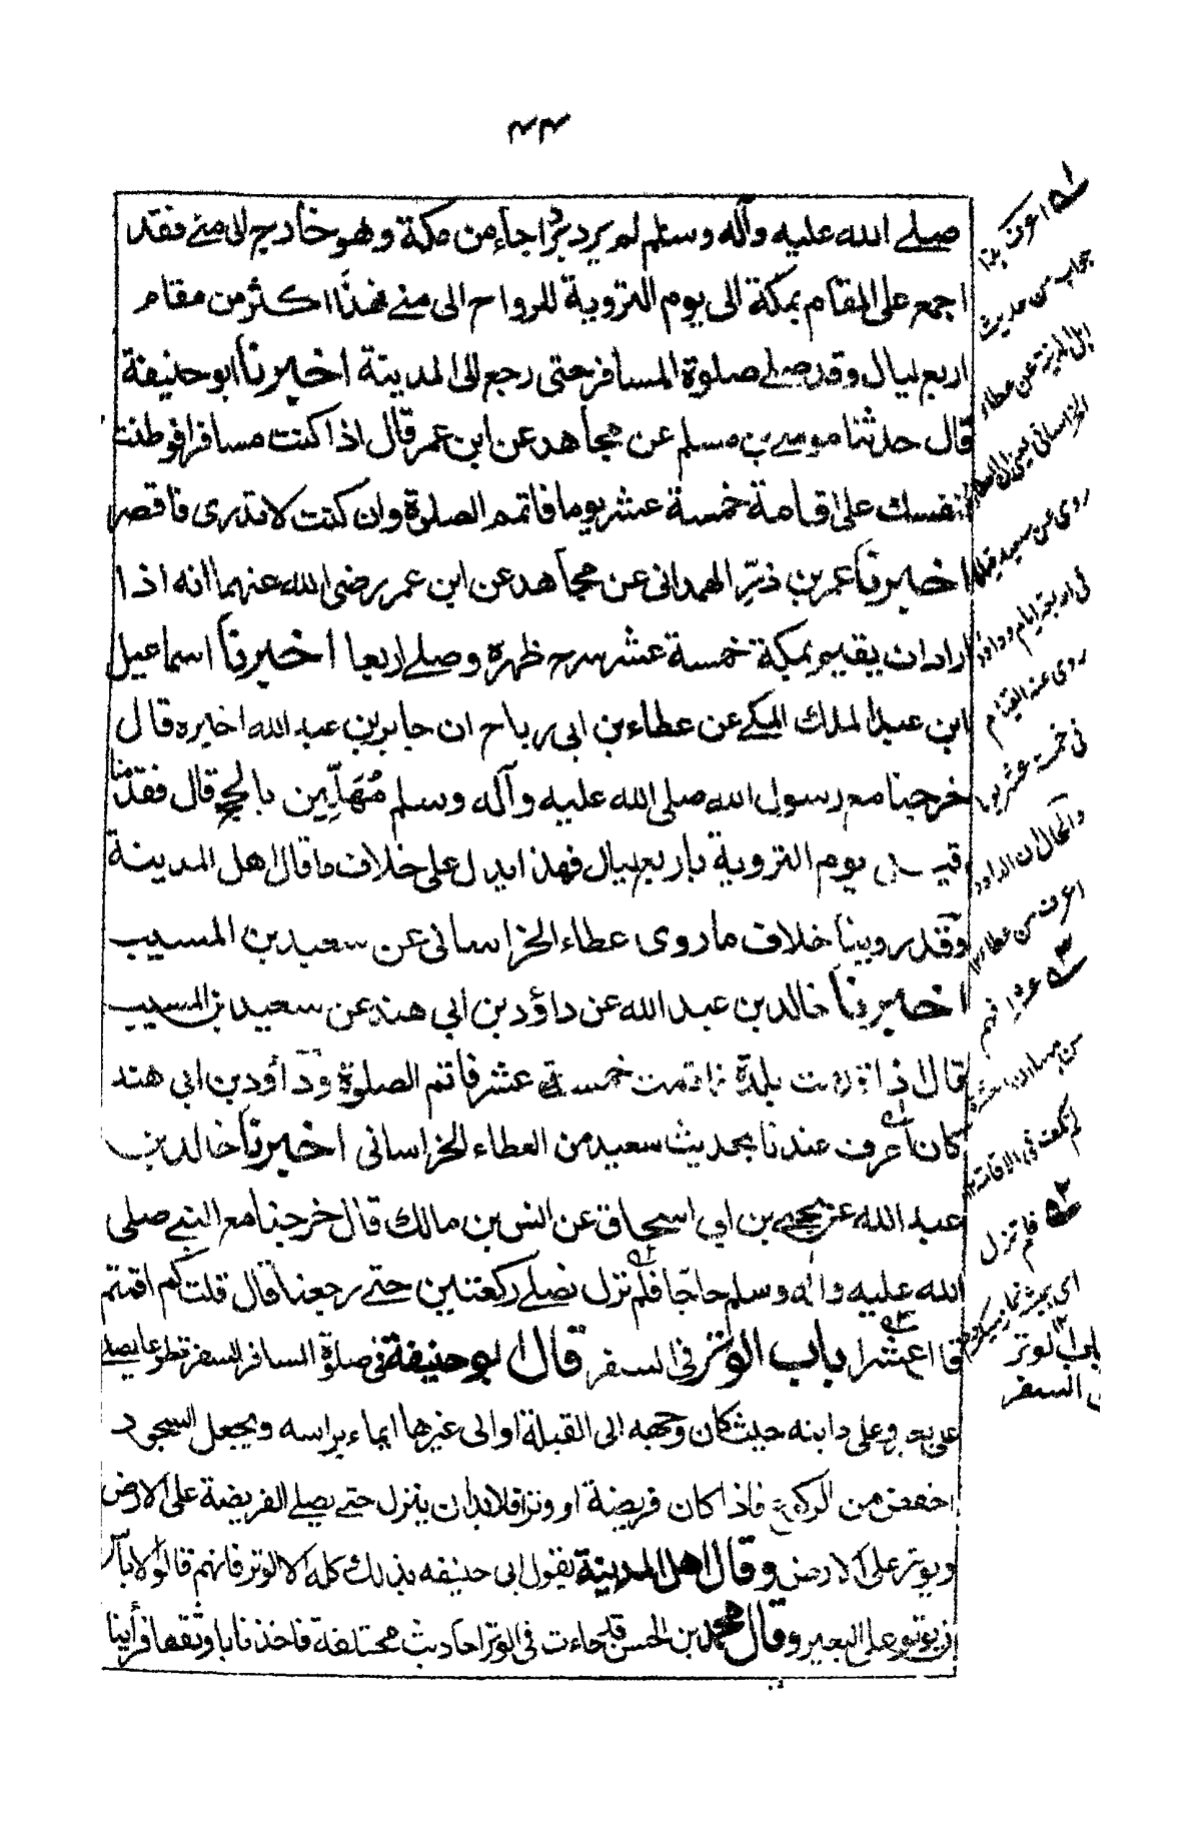 ٤٤
صلے الله عليه وآله وسلم لم يرد اجاء من مكة وهو خارج الى منے فقد
اجمع على المقام بمكة الى يوم التروية للرواح الى منے فهذا اكثر من مقام
اربع ليال وقد صلے صلوة المسافر حتى رجع الى المدينة اخبرنا ابو حنيفة
قال حدثنا موسے بن مسلم عن مجاهد عن ابن عمر قال اذا كنت مسافرا فوطنت
نفسك على اقامة خمسة عشر يوما فاتمم الصلوة وان كنت لا تدرى فاقصر
اخبرنا عمر بن ذرّ الهمدانى عن مجاهد عن ابن عمر رضى الله عنهما انه اذا
اراد ان يقيم بمكة خمسة عشر سرح ظهره وصلے اربعا اخبرنا اسماعيل
ابن عبد الملك المكے عن عطاء بن ابى رباح ان جابر بن عبد الله اخبره قال
خرجنا مع رسول الله صلى الله عليه وآله وسلم مُهَلِّين بالحج قال فقدمنا
قبل يوم التروية باربع ليال فهذا يدل على خلاف ما قال اهل المدينة
وقد روينا خلاف ما روى عطاء الخراسانى عن سعيد بن المسيب
اخبرنا خالد بن عبد الله عن داؤد بن ابي هند عن سعيد بن المسيب
قال اذا قدمت بلدة فاقمت خمسة عشر فاتم الصلوة ودآؤد بن ابي هند
كان اعرف عندنا بحديث سعيد من العطاء الخراسانى اخبرنا خالد بن
عبد الله عن يحيے بن ابي اسحاق عن انس بن مالك قال خرجنا مع النبے صلى
الله عليه واله وسلم حاجّا فلم نزل نصلے ركعتين حتے رجعنا قال قلت كم اقمتم
قال عشرا باب الوتر فى السفر قال ابو حنيفة فى صلوة المسافر السفر تطوعا يصلے
على بعيره وعلى دابته حيث كان وجهه الى القبلة او الى غيرها ايماء براسه ويجعل السجود
اخفض من الركوع فاذا كان فريضة او وترا فلا بد ان ينزل حتے يصلے الفريضة على الارض
ويوتر على الارض وقال اهل المدينة بقول ابى حنيفه بذلك كله الا الوتر فانهم قالوا لا باس
ان يوتر على البعير وقال محمد بن الحسن قد جاءت فى الوتر احاديث مختلفة فاخذنا باوثقها فرأينا
اعرف
جواب من حديث
اهل المدينة عن عطاء
الخراسانى
روى عن سعيد
فى اربعة ايام وداؤد
روى عنه القيام
فى خمسة عشر يوما
والحال ان داؤد
اعرف من عطاء ١٢
عشرا
فى الاقامة ١٢
فلم نزل
اى
باب الوتر
فى السفر